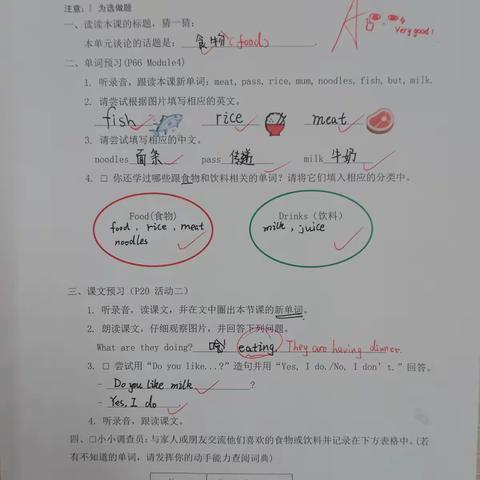 注意:□为选做题
一、读读本课的标题,猜一猜:
本单元谈论的话题是: 食物(food)
A
Very good!
二、单词预习(P66 Module4)
1. 听录音,跟读本课新单词:meat,pass,rice,mum,noodles,fish,but,milk.
2. 请尝试根据图片填写相应的英文。
fish rice meat
3. 请尝试填写相应的中文。
noodles 面条 pass 传递 milk 牛奶
4. □ 你还学过哪些跟食物和饮料相关的单词?请将它们填入相应的分类中。
Food(食物) Drinks(饮料)
food, rice, meat milk, juice
noodles
三、课文预习(P20 活动二)
1. 听录音,读课文,并在文中圈出本节课的新单词。
2. 朗读课文,仔细观察图片,并回答下列问题。
What are they doing? eating They are having dinner.
3. □ 尝试用“Do you like...?”造句并用“Yes, I do./No, I don't.”回答。
- Do you like milk ?
- Yes, I do .
4. 听录音,跟读课文。
四、□小小调查员:与家人或朋友交流他们喜欢的食物或饮料并记录在下方表格中。(若
有不知道的单词,请发挥你的动手能力查阅词典)